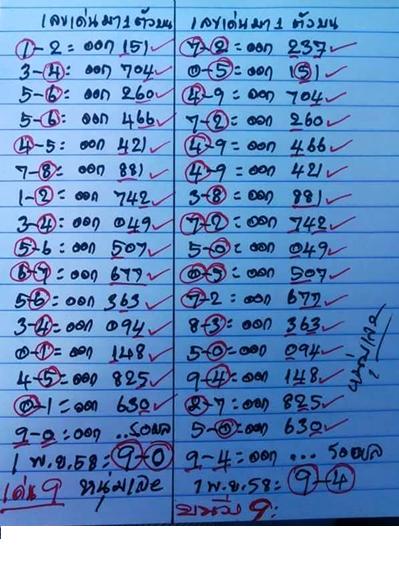 เลขเด่นมา 1 ตัวบน
1-2 = ออก 151 ✓
3-4 = ออก 704 ✓
5-6 = ออก 260 ✓
5-6 = ออก 466 ✓
4-5 = ออก 421 ✓
7-8 = ออก 881 ✓
1-2 = ออก 742 ✓
3-4 = ออก 049 ✓
5-6 = ออก 507 ✓
6-7 = ออก 677 ✓
5-6 = ออก 363 ✓
3-4 = ออก 094 ✓
0-1 = ออก 148 ✓
4-5 = ออก 825 ✓
0-1 = ออก 630 ✓
9-0 = ออก ...รอผล
1 พ.ย.58: 9-0
เด่น 9 หนุ่มเลย
เลขเด่นมา 1 ตัวบน
7-2 = ออก 237 ✓
0-5 = ออก 151 ✓
4-9 = ออก 704 ✓
7-2 = ออก 260 ✓
4-9 = ออก 466 ✓
4-9 = ออก 421 ✓
3-8 = ออก 881 ✓
7-2 = ออก 742 ✓
5-0 = ออก 049 ✓
0-5 = ออก 507 ✓
7-2 = ออก 677 ✓
8-3 = ออก 363 ✓
5-0 = ออก 094 ✓
9-4 = ออก 148 ✓
2-7 = ออก 825 ✓
5-0 = ออก 630 ✓
9-4 = ออก ... รอผล
1 พ.ย.58: 9-4
บนวิ่ง 9:
หนุ่มเลย